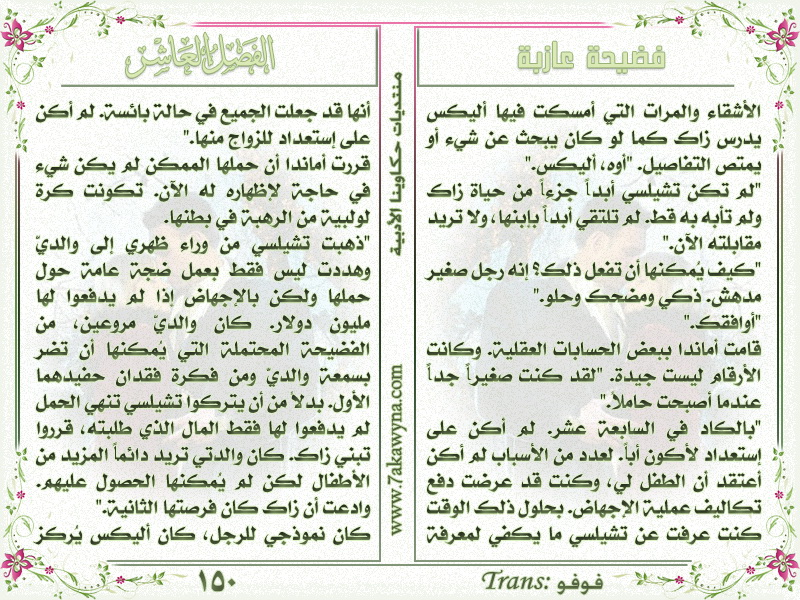 فضيحة عازبة
الأشقاء والمرات التي أمسكت فيها أليكس
يدرس زاك كما لو كان يبحث عن شيء أو
يمتص التفاصيل. "أوه، أليكس."
"لم تكن تشيلسي أبداً جزءاً من حياة زاك
ولم تأبه به قط. لم تلتقي أبداً بإبنها، ولا تريد
مقابلته الآن."
"كيف يُمكنها أن تفعل ذلك؟ إنه رجل صغير
مدهش. ذكي ومضحك وحلو."
"أوافقك."
قامت أماندا ببعض الحسابات العقلية. وكانت
الأرقام ليست جيدة. "لقد كنت صغيراً جداً
عندما أصبحت حاملاً."
"بالكاد في السابعة عشر. لم أكن على
إستعداد لأكون أباً. لعدد من الأسباب لم أكن
أعتقد أن الطفل لي، وكنت قد عرضت دفع
تكاليف عملية الإجهاض. بحلول ذلك الوقت
كنت عرفت عن تشيلسي ما يكفي لمعرفة
الفصل العاشر
أنها قد جعلت الجميع في حالة بائسة. لم أكن
على إستعداد للزواج منها."
قررت أماندا أن حملها الممكن لم يكن شيء
في حاجة لإظهاره له الآن. تكونت كرة
لولبية من الرهبة في بطنها.
"ذهبت تشيلسي من وراء ظهري إلى والديّ
وهددت ليس فقط بعمل ضجة عامة حول
حملها ولكن بالإجهاض إذا لم يدفعوا لها
مليون دولار. كان والديّ مروعين، من
الفضيحة المحتملة التي يُمكنها أن تضر
بسمعة والديّ ومن فكرة فقدان حفيدهما
الأول. بدلاً من أن يتركوا تشيلسي تنهي الحمل
لم يدفعوا لها فقط المال الذي طلبته، قرروا
تبني زاك. كان والدتي تريد دائماً المزيد من
الأطفال لكن لم يُمكنها الحصول عليهم.
وادعت أن زاك كان فرصتها الثانية."
كان نموذجي للرجل، كان أليكس يُركز
منتديات حكاوينا الأدبية
www.7akawyna.com
Trans: فوفو
١٥٠